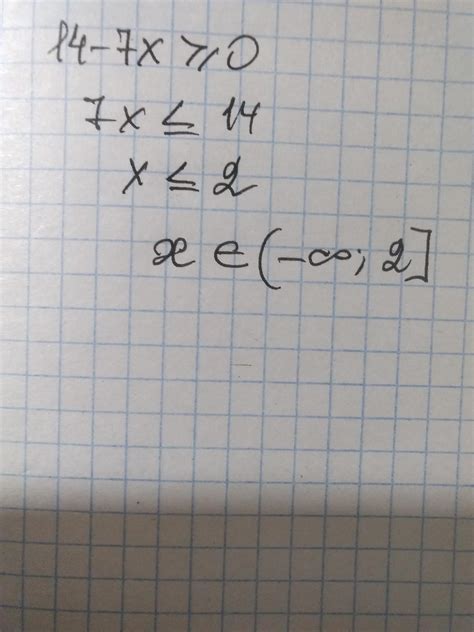 14-7x ⩾ 0
7x ≤ 14
x ≤ 2
x ∈ (-∞; 2]